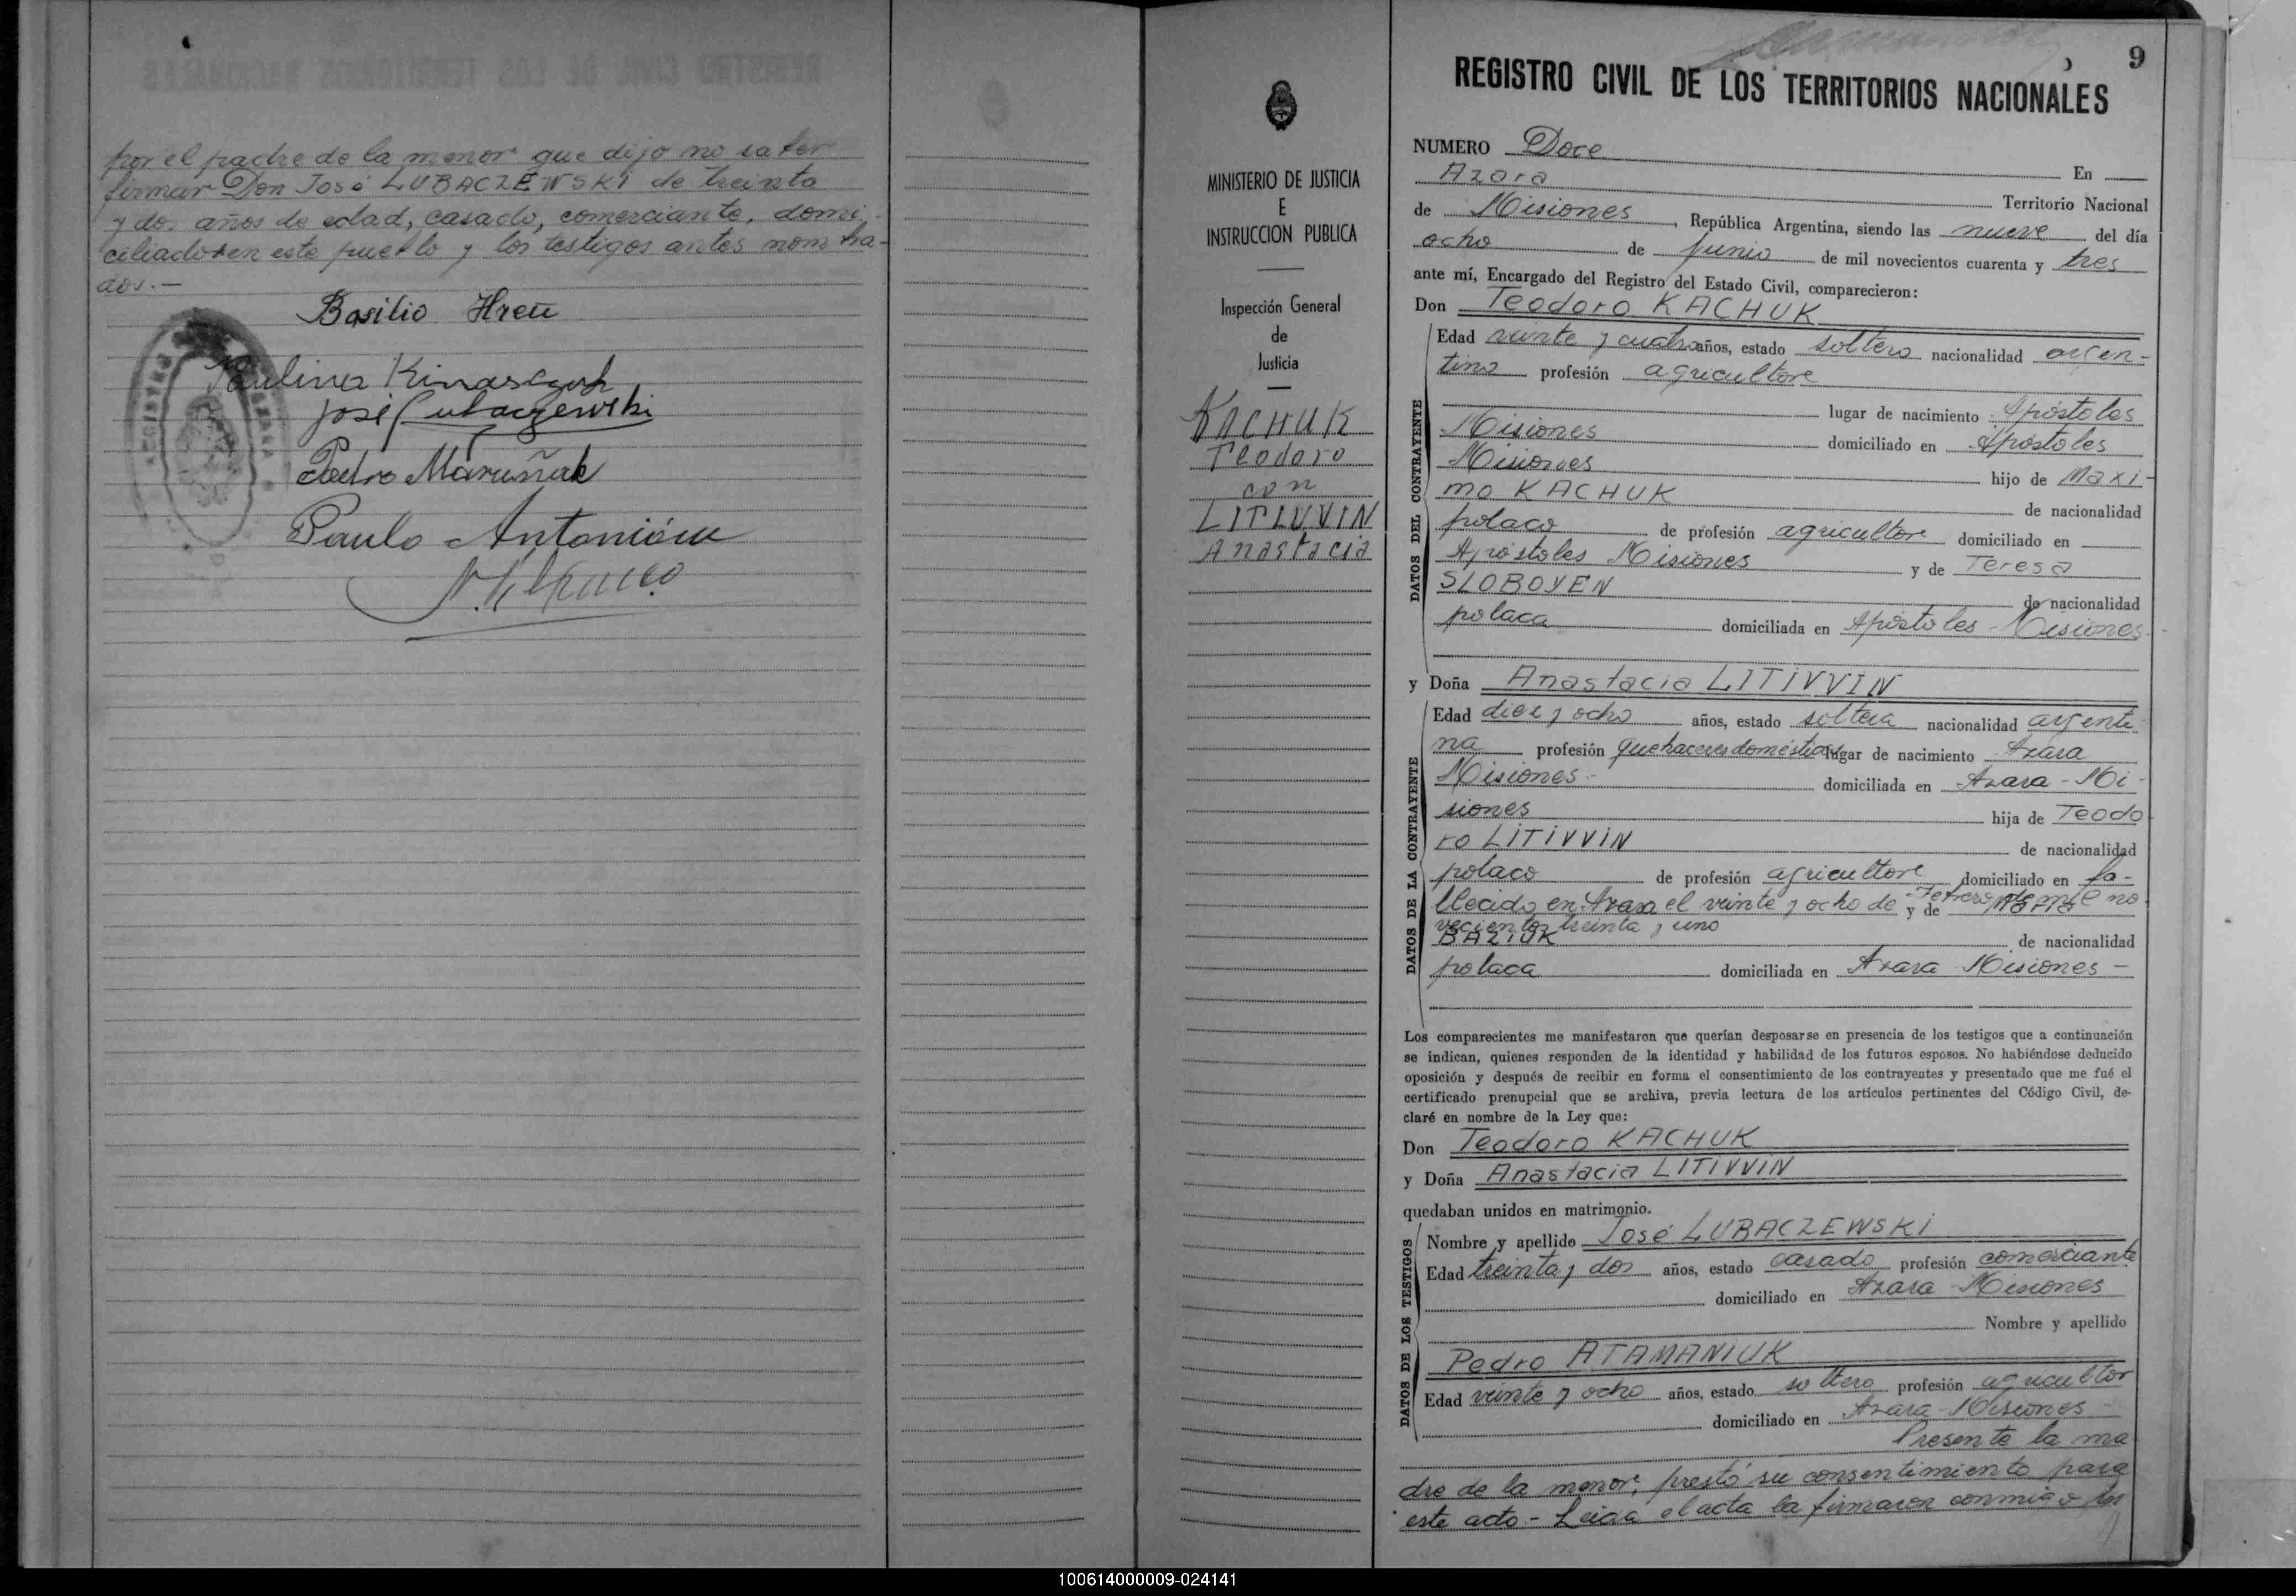 por el padre de la menor que dijo no saber
firmar Don José LUBACZEWSKI de treinta
y dos años de edad, casado, comerciante, domi-
ciliado en este pueblo y los testigos antes nombra-
dos.—
Basilio Hreñ
Paulina
José Lubaczewski
Pedro Maruñak
Paulo Antoniów
MINISTERIO DE JUSTICIA
E
INSTRUCCION PUBLICA
Inspección General
de
Justicia
KACHUK
Teodoro
con
LITIVVIN
Anastacia
9
REGISTRO CIVIL DE LOS TERRITORIOS NACIONALES
NUMERO Doce En
Azara Territorio Nacional
de Misiones, República Argentina, siendo las nueve del día
ocho de Junio de mil novecientos cuarenta y tres
ante mí, Encargado del Registro del Estado Civil, comparecieron:
Don Teodoro KACHUK
DATOS DEL CONTRAYENTE
Edad veinte y cuatro años, estado soltero nacionalidad argen-
tino profesión agricultore
lugar de nacimiento Apóstoles
Misiones domiciliado en Apóstoles
Misiones hijo de Maxi-
mo KACHUK de nacionalidad
polaco de profesión agricultore domiciliado en
Apóstoles Misiones y de Teresa
SLOBOYEN de nacionalidad
polaca domiciliada en Apóstoles - Misiones
y Doña Anastacia LITIVVIN
DATOS DE LA CONTRAYENTE
Edad diez y ocho años, estado soltera nacionalidad argenti-
na profesión quehaceres domésticos lugar de nacimiento Azara
Misiones - domiciliada en Azara - Mi-
siones hija de Teodo
ro LITIVVIN de nacionalidad
polaco de profesión agricultore domiciliado en fa-
llecido en Azara el veinte y ocho de Febrero de mil no
y de María
vecientos treinta y uno
BAZIUK de nacionalidad
polaca domiciliada en Azara Misiones -
Los comparecientes me manifestaron que querían desposarse en presencia de los testigos que a continuación
se indican, quienes responden de la identidad y habilidad de los futuros esposos. No habiéndose deducido
oposición y después de recibir en forma el consentimiento de los contrayentes y presentado que me fué el
certificado prenupcial que se archiva, previa lectura de los artículos pertinentes del Código Civil, de-
claré en nombre de la Ley que:
Don Teodoro KACHUK
y Doña Anastacia LITIVVIN
quedaban unidos en matrimonio.
DATOS DE LOS TESTIGOS
Nombre y apellido José LUBACZEWSKI
Edad treinta y dos años, estado casado profesión comerciante
domiciliado en Azara Misiones
Nombre y apellido
Pedro ATAMANIUK
Edad veinte y ocho años, estado soltero profesión agricultor
domiciliado en Azara - Misiones
Presente la ma
dre de la menor, prestó su consentimiento para
este acto - Leida el acta la firmaron conmigo
100614000009-024141